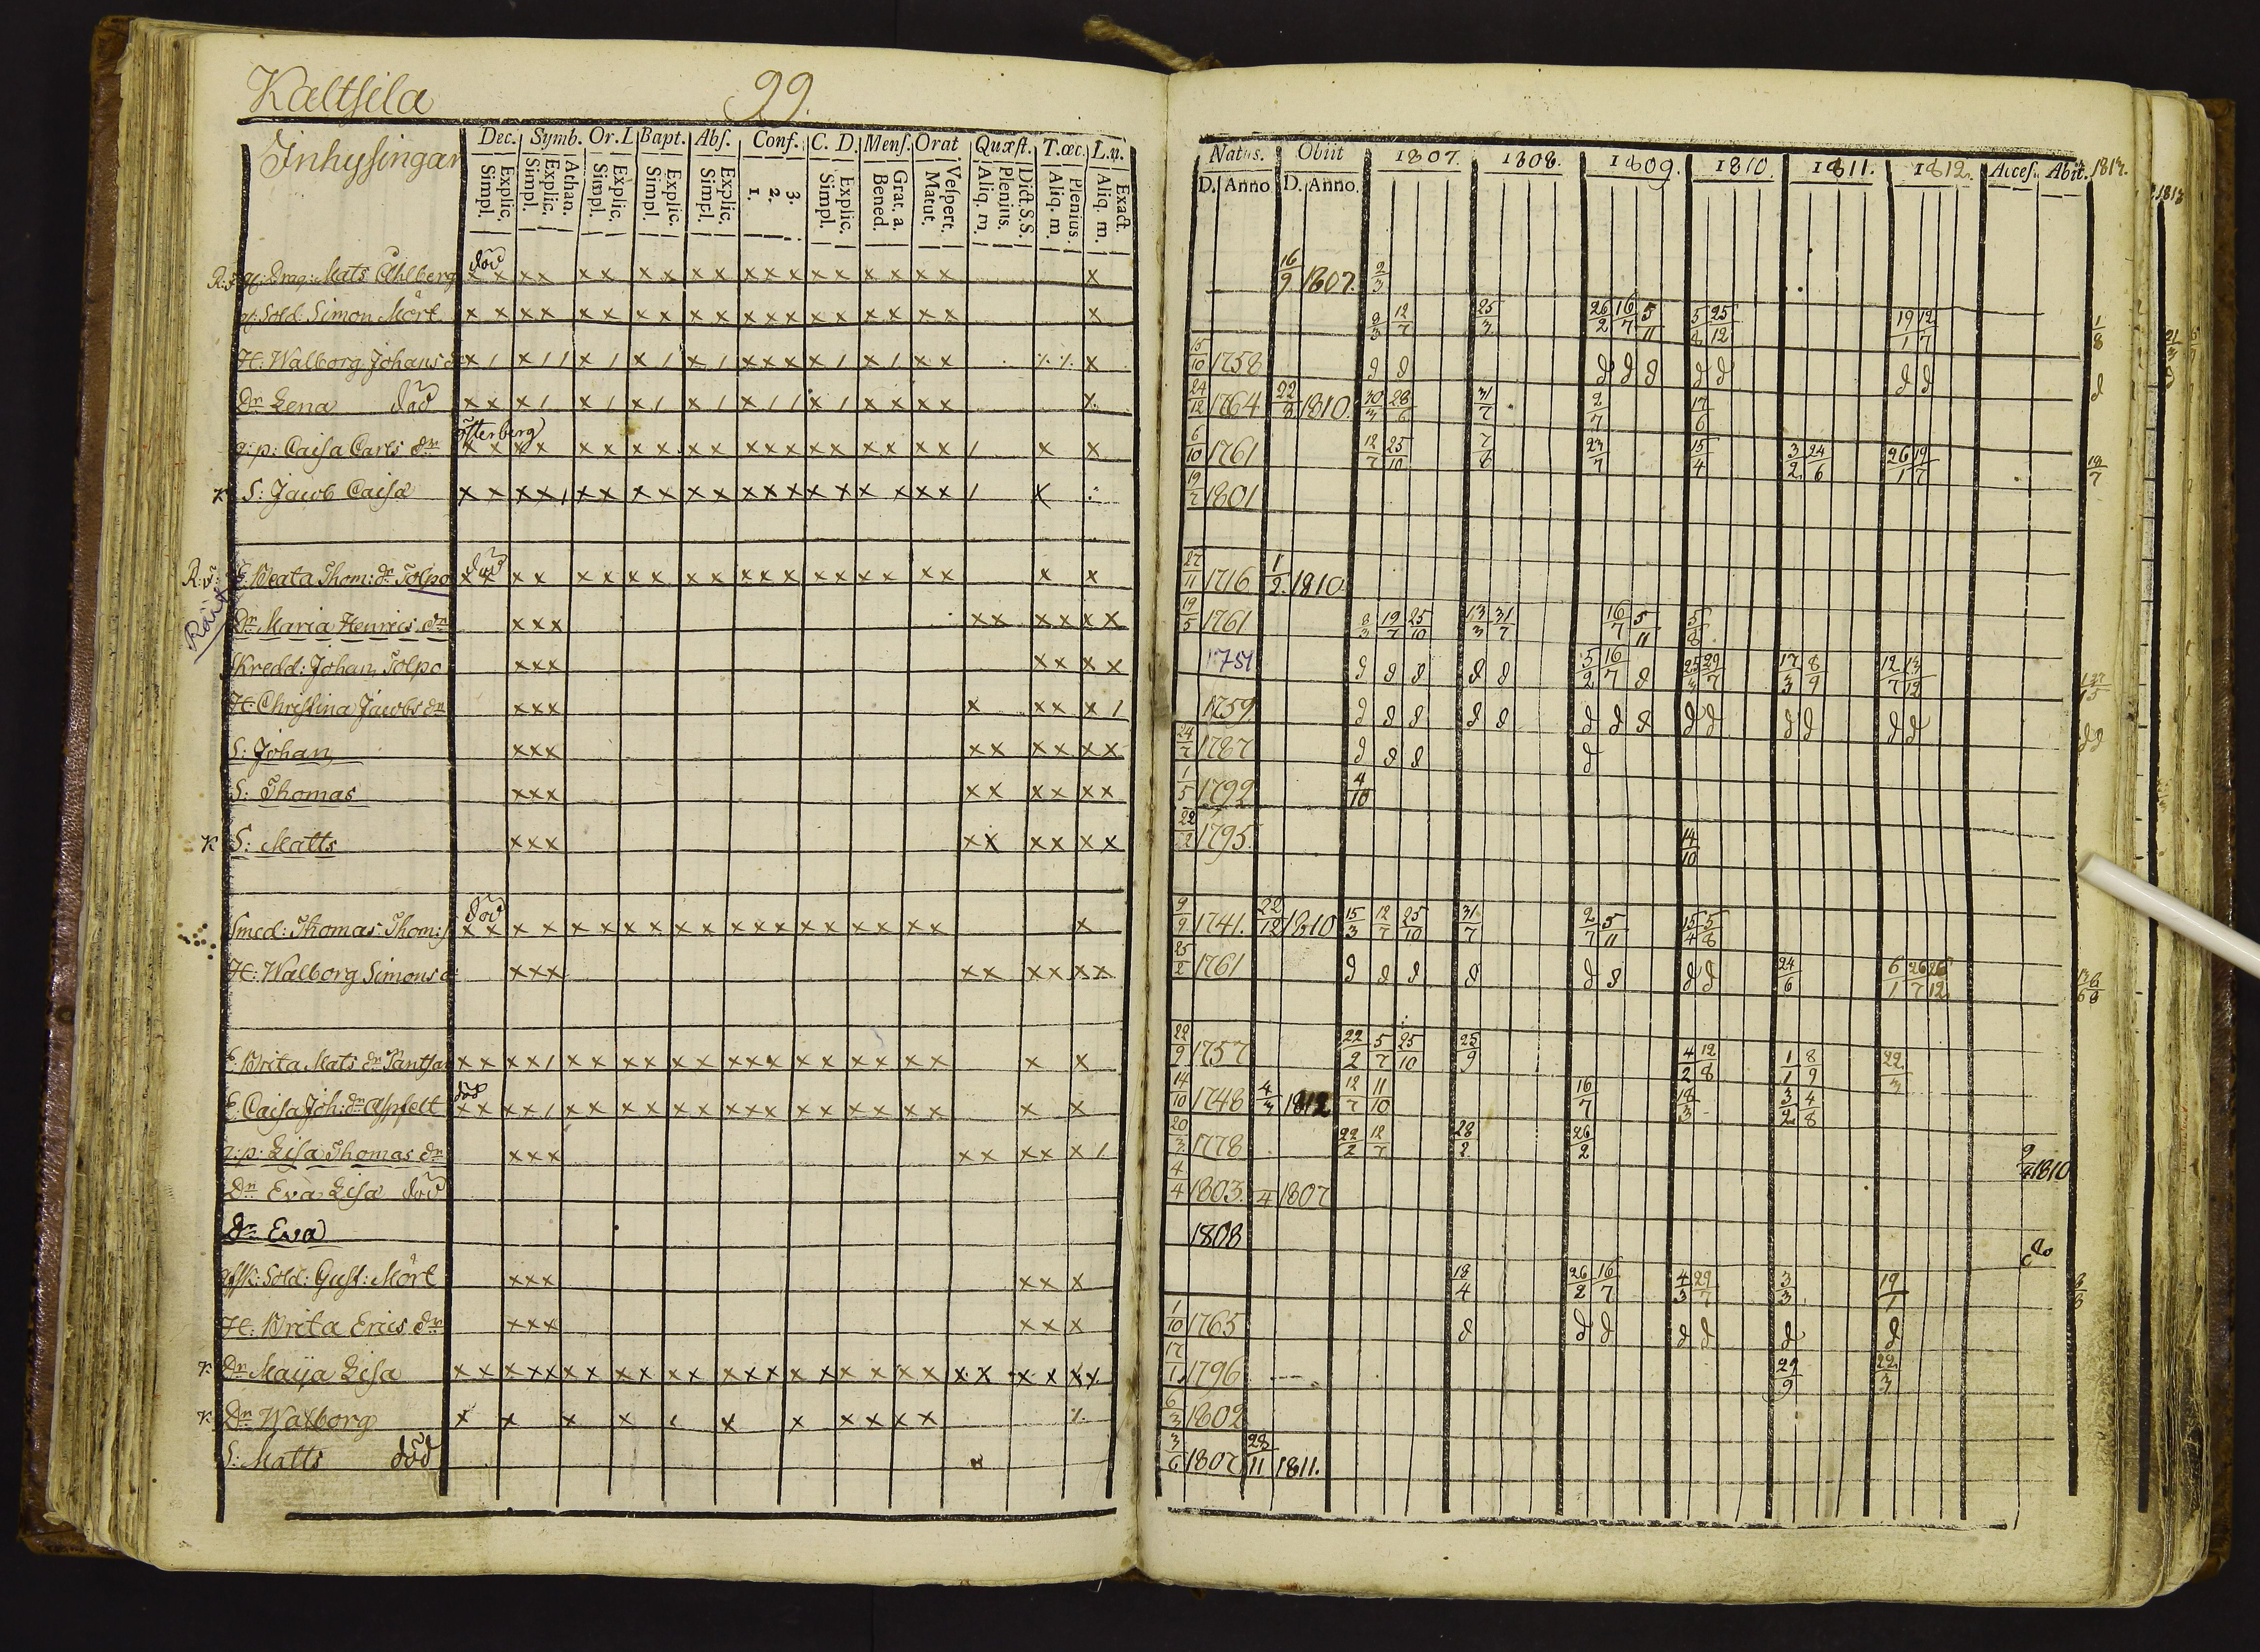 Kaltsila 99.
Inhysingar Dec. Symb. Or. L Bapt. Abs. Conf. C. D. Mens. Orat. Quæst. T. œc. L. m. Natus. Obiit 1807. 1808. 1809. 1810. 1811. 1812. Acces. Abiit. 1813.
Simpl. Explic. Simpl. Explic. Athan. Simpl. Explic. Simpl. Explic. Simpl. Explic. 1. 2. 3. Simpl. Explic. Bened. Grat. a. Matut. Vespert. Aliq. m. Plenius. Dict. S.S. Aliq. m. Plenius. Aliq. m. Exact. D. Anno D. Anno.
Drag: Mats Ahlberg död 16/9 1807. 2/3
Sold: Simon Mört 8/3 12/7 25/3 26/2 16/7 5/11 5/8 25/12 19/1 12/7 1/8
H: Walborg Johans dr 15/10 1758 d d d d d d d d d d
Dr Lena död 24/12 1764 22/8 1810. 30/3 28/6 31/7 2/7 17/6
q: p: Caisa Carls dr Österberg 6/10 1761 12/7 25/10 7/8 23/7 15/4 3/2 24/6 26/1 19/7 19/7
S: Jacob Caisa 19/7 1801
E: Beata Thom: dr Tolpo död 27/11 1716 1/2 1810.
Dr Maria Henrics dr 19/5 1761 8/3 19/7 25/10 13/3 31/7 16/7 5/11 5/8
Skredd: Johan Tolpo 1751 d d d d d 5/2 16/7 d 25/3 29/7 17/3 8/9 12/7 13/12
H: Christina Jacobs dr 1759 d d d d d d d d d d d d d d d d d
S: Johan 24/7 1787 d d d d
S: Thomas 1/5 1792 4/10
S: Matts 22/2 1795. 14/10
Smed: Thomas Thom: s död 9/9 1741. 22/12 1810 15/3 12/7 25/10 31/7 2/7 5/11 15/4 5/8
H: Walborg Simons d 25/2 1761 d d d d d d d d 24/6 6/1 26/7 26/12
E: Brita Mats dr 22/9 1757 22/2 5/7 25/10 25/9 4/2 12/8 1/1 8/9 22/3
E: Caisa Joh: dr Apfelt död 14/10 1748 4/3 1812 12/7 11/10 16/7 18/3 3/2 4/8
q: p: Lisa Thomas dr 20/3 1778 22/2 12/7 28/2 26/2 9/4 1810
Dr Eva Lisa död 4/4 1803. /4 1807
dr Eva 1808 do
Sold: Gust: Mört 18/4 26/2 16/7 4/3 29/7 3/3 19/1
H: Brita Erics dr 1/10 1765 d d d d d d d
Dr Maija Lisa 17/1 1796 29/9 22/3
Dr Walborg 6/3 1802
S: Matts död 3/6 1807 28/11 1811.